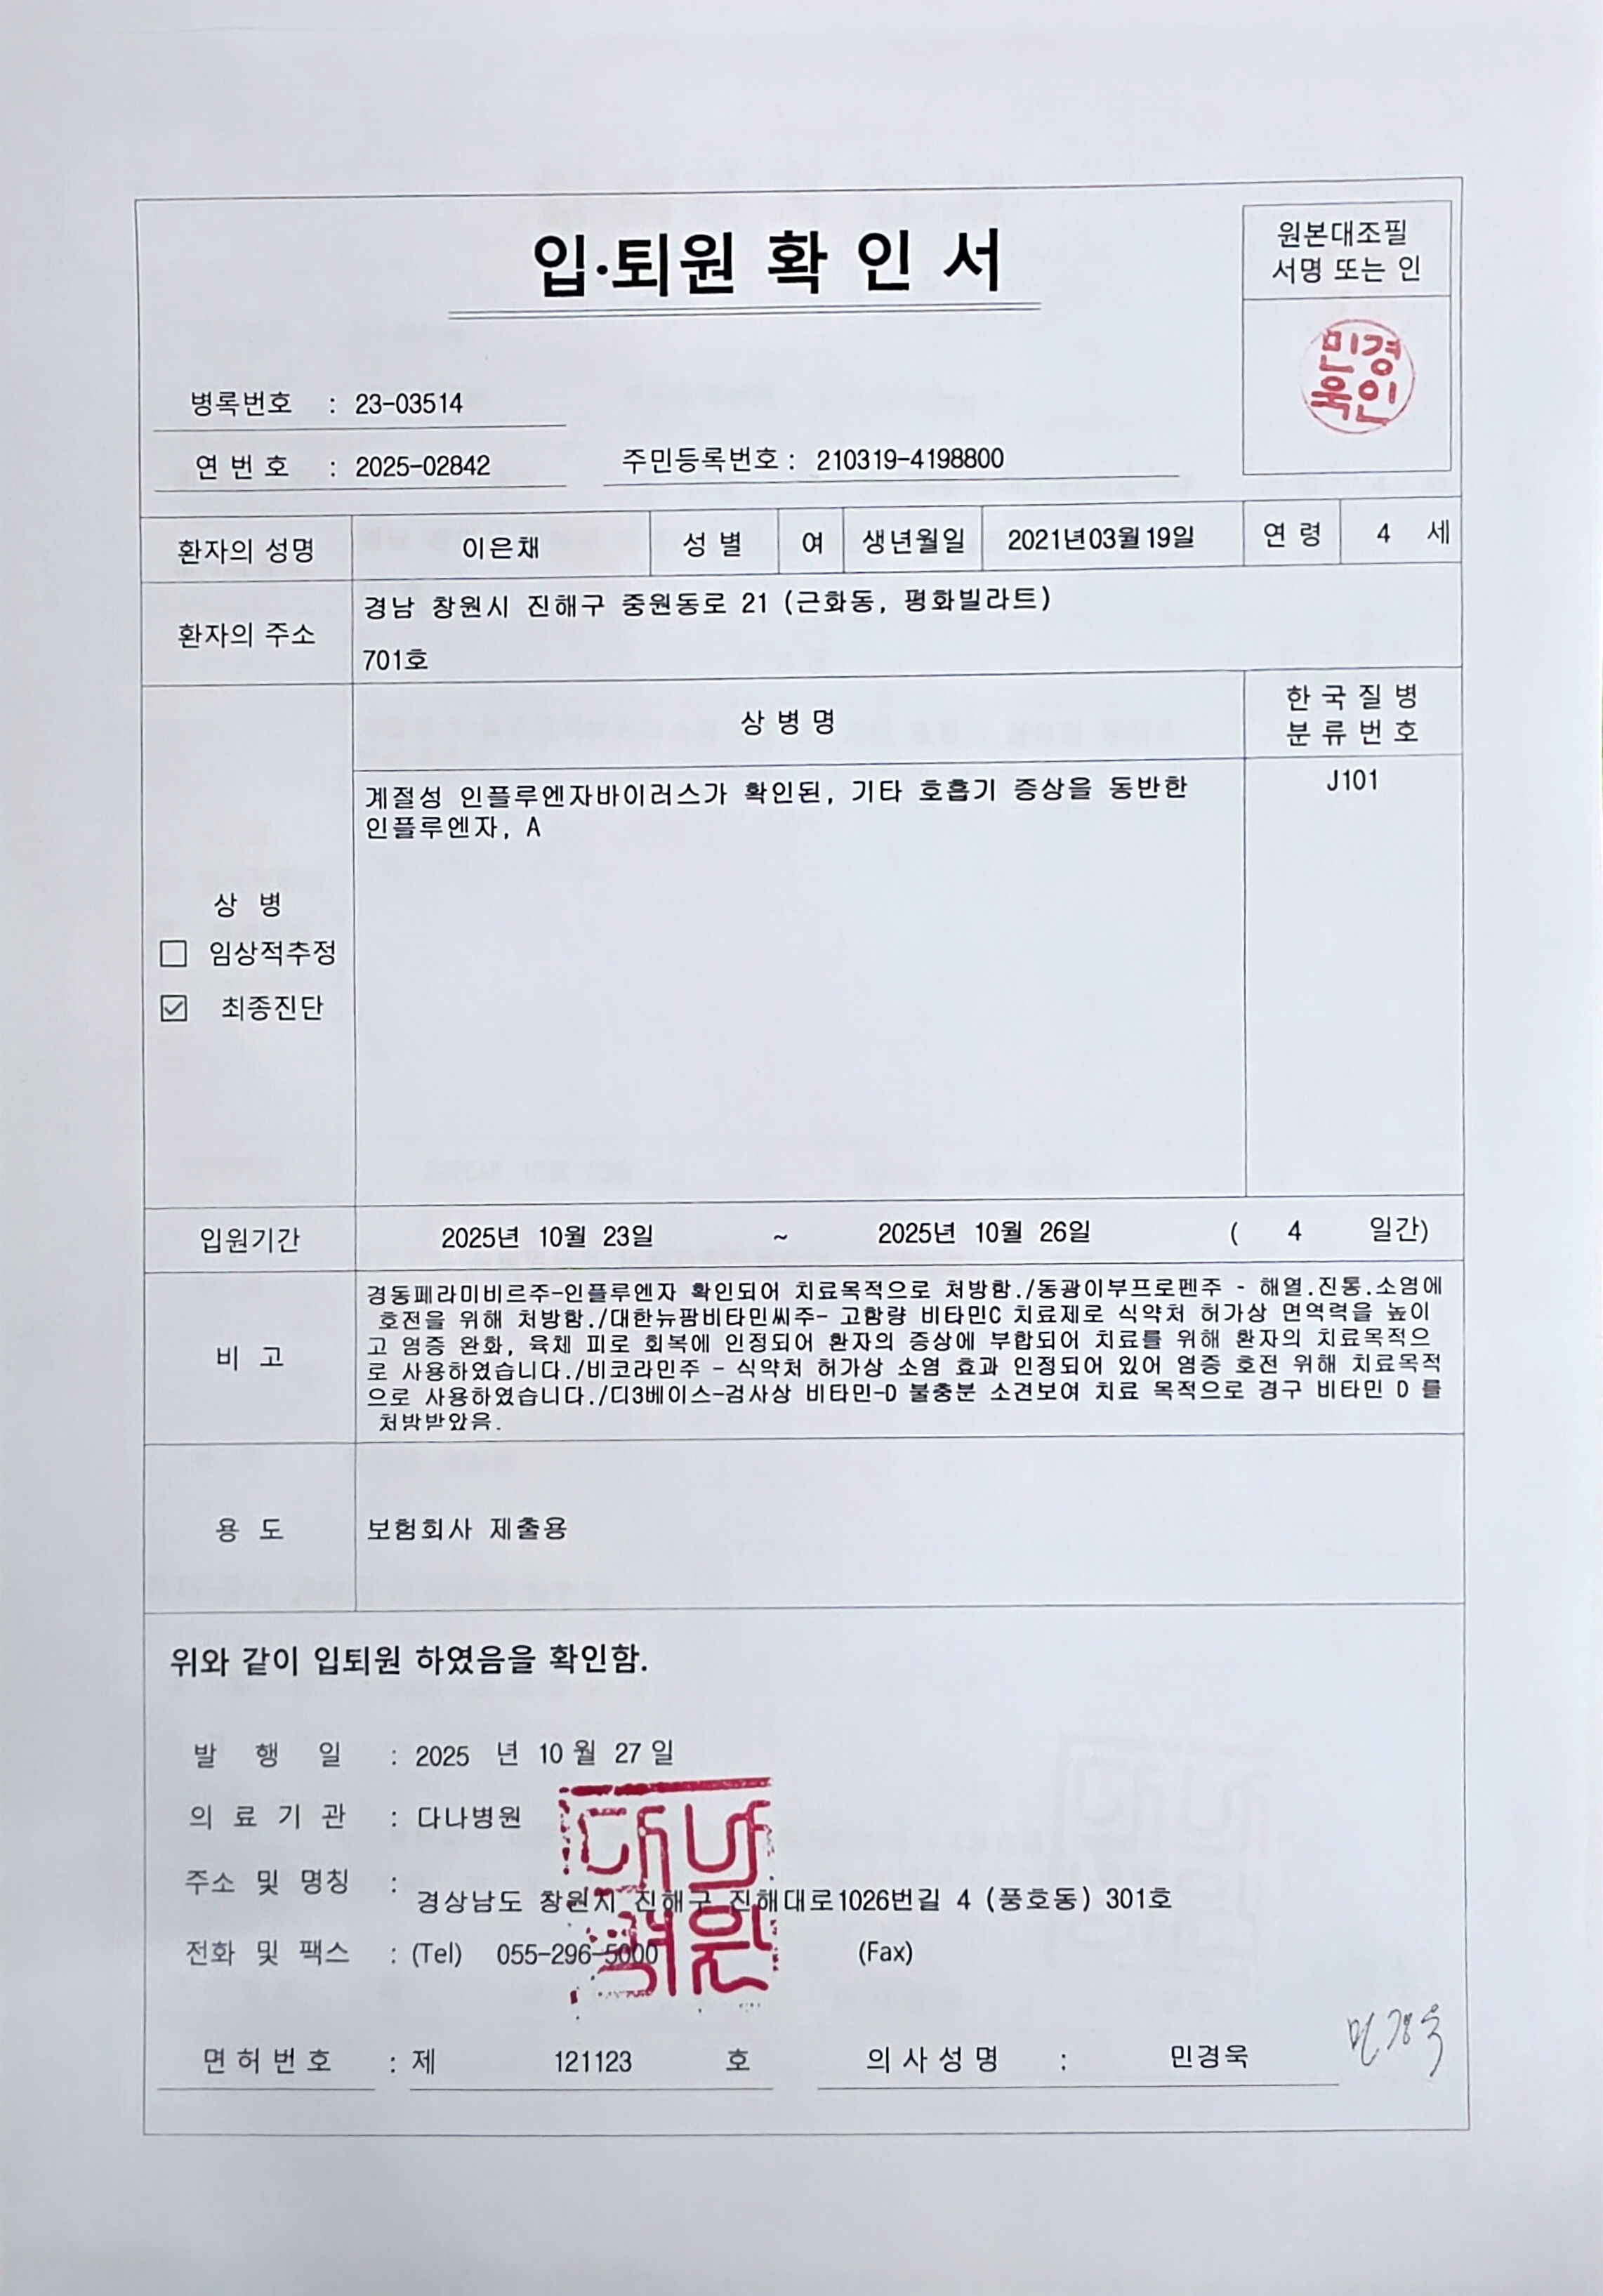 입·퇴원 확 인 서
원본대조필
서명 또는 인
민경
욱인
병록번호 : 23-03514
연 번 호 : 2025-02842 주민등록번호 : 210319-4198800
환자의 성명 이은채 성 별 여 생년월일 2021년03월19일 연 령 4 세
환자의 주소 경남 창원시 진해구 중원동로 21 (근화동, 평화빌라트)
701호
상 병 명 한 국 질 병
분 류 번 호
계절성 인플루엔자바이러스가 확인된, 기타 호흡기 증상을 동반한 J101
인플루엔자, A
상 병
☐ 임상적추정
☑ 최종진단
입원기간 2025년 10월 23일 ~ 2025년 10월 26일 ( 4 일간)
비 고
경동페라미비르주-인플루엔자 확인되어 치료목적으로 처방함./동광이부프로펜주 - 해열.진통.소염에
호전을 위해 처방함./대한뉴팜비타민씨주- 고함량 비타민C 치료제로 식약처 허가상 면역력을 높이
고 염증 완화, 육체 피로 회복에 인정되어 환자의 증상에 부합되어 치료를 위해 환자의 치료목적으
로 사용하였습니다./비코라민주 - 식약처 허가상 소염 효과 인정되어 있어 염증 호전 위해 치료목적
으로 사용하였습니다./디3베이스-검사상 비타민-D 불충분 소견보여 치료 목적으로 경구 비타민 D 를
처방받았음.
용 도 보험회사 제출용
위와 같이 입퇴원 하였음을 확인함.
발 행 일 : 2025 년 10 월 27 일
의 료 기 관 : 다나병원
주소 및 명칭 : 경상남도 창원시 진해구 진해대로1026번길 4 (풍호동) 301호
전화 및 팩스 : (Tel) 055-296-5000 (Fax)
면 허 번 호 : 제 121123 호 의 사 성 명 : 민경욱 민경욱